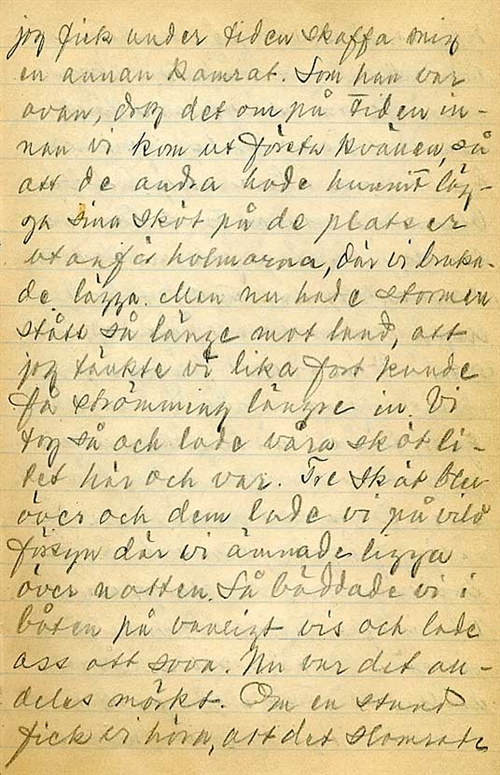 jog fick under tiden skaffa mig
en annan kamrat. Som han var
ovan, drog det om på tiden in-
nan vi kom ut första kvällen, så
att de andra hade hunnit läg-
ga sina sköt på de platser
utanför holmarna, där vi bruka-
de lägga. Men nu hade stormen
stått så länge mot land, att
jog tänkte vi lika fort kunde
få strömming längre in. Vi
tog så och lade våra sköt li-
tet här och var. Tre sköt blev
över och dem lade vi på vild
försyn där vi ämnade ligga
över natten. Så bäddade vi i
båten på vanligt vis och lade
oss att sova. Nu var det al-
deles mörkt. Om en stund
fick vi höra, att det slamrade